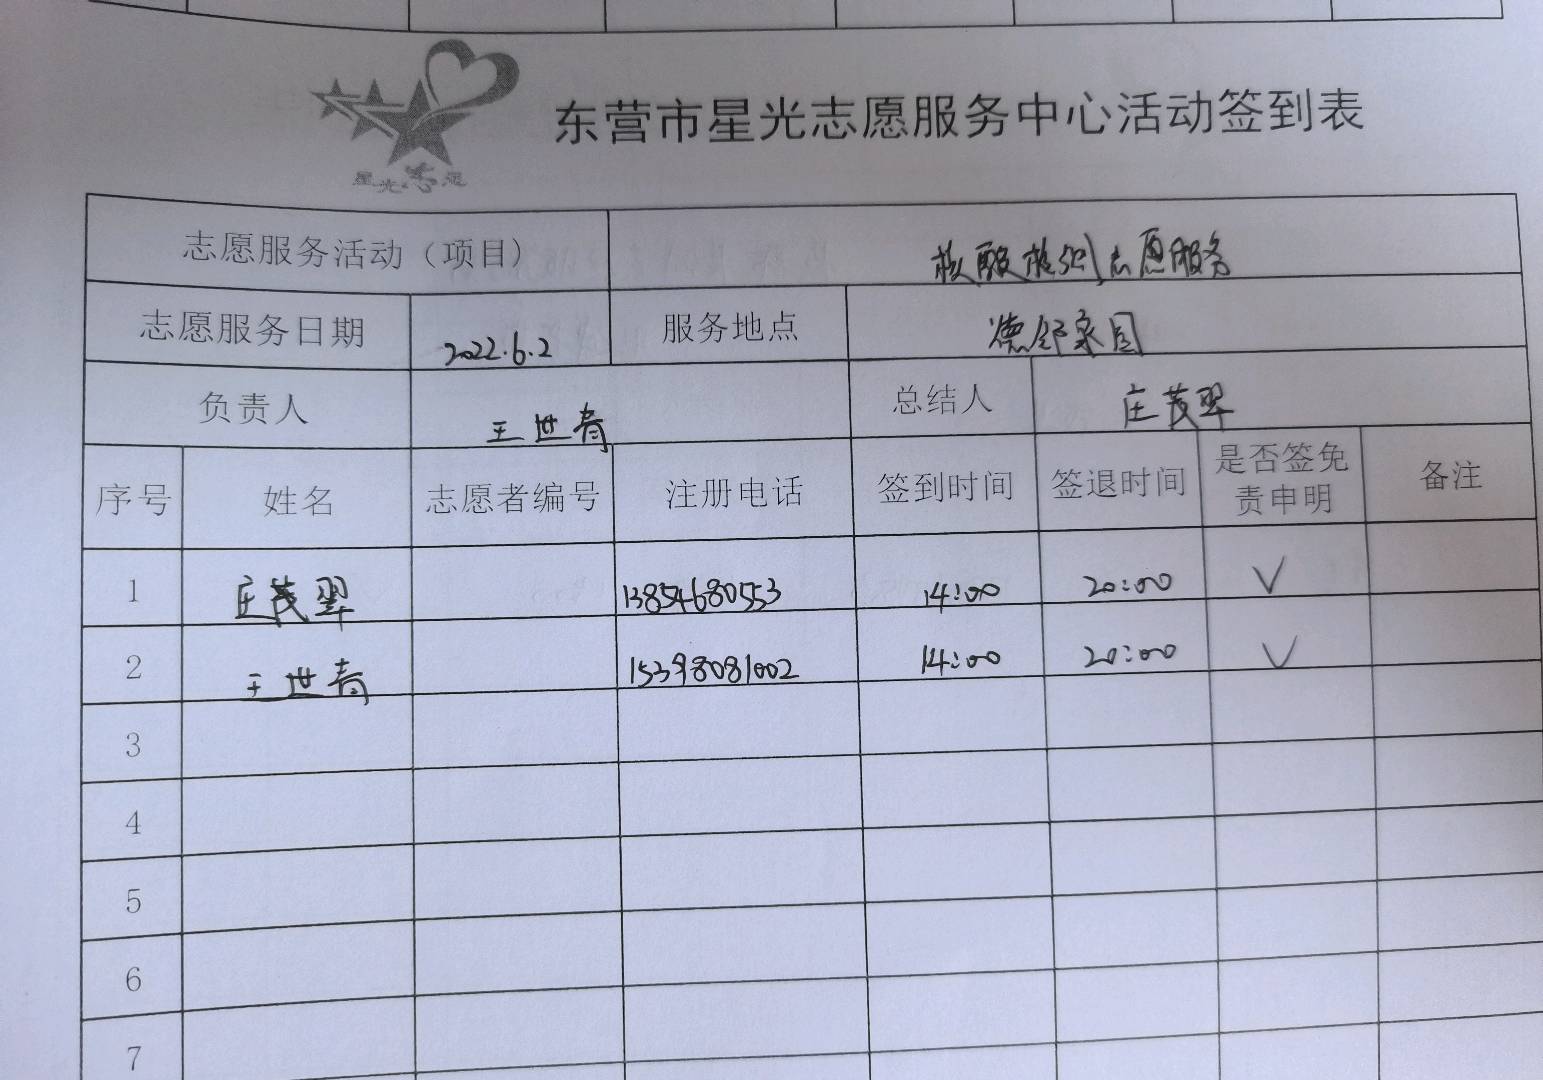 星光志愿
东营市星光志愿服务中心活动签到表
志愿服务活动（项目） 核酸检测志愿服务
志愿服务日期 2022.6.2 服务地点 德邻家园
负责人 王世春 总结人 庄茂翠
序号 姓名 志愿者编号 注册电话 签到时间 签退时间 是否签免
责申明 备注
1 庄茂翠 13854680553 14:00 20:00 √
2 王世春 15398081002 14:00 20:00 √
3
4
5
6
7